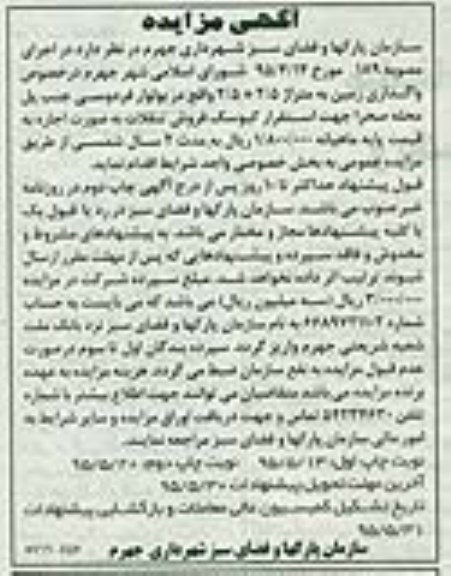 آگهی مزایده
سازمان پارکها و فضای سبز شهرداری جهرم در نظر دارد در اجرای
مصوبه ۱۸۹ مورخ ۹۵/۴/۱۲ شورای اسلامی شهر جهرم درخصوص
واگذاری زمین به متراژ ۲/۵ * ۲/۵ واقع در بولوار فردوسی جنب پل
محله صحرا جهت استقرار کیوسک فروش تنقلات به صورت اجاره به
قیمت پایه ماهیانه ۱/۸۰۰/۰۰۰ ریال به مدت ۲ سال شمسی از طریق
مزایده عمومی به بخش خصوصی واجد شرایط اقدام نماید.
قبول پیشنهاد حداکثر تا ۱۰ روز پس از درج آگهی چاپ دوم در روزنامه
خبر جنوب می باشند. سازمان پارکها و فضای سبز در رد یا قبول یک
یا کلیه پیشنهادها مجاز و مختار می باشد. به پیشنهادهای مشروط و
مخدوش و فاقد سپرده و پیشنهادهایی که پس از مهلت مقرر ارسال
شوند ترتیب اثر داده نخواهد شد. مبلغ سپرده شرکت در مزایده
۳/۰۰۰/۰۰۰ ریال (سه میلیون ریال) می باشد که می بایست به حساب
شماره به نام سازمان پارکها و فضای سبز نزد بانک ملت
شعبه شریعتی جهرم واریز گردد. سپرده برندگان اول تا سوم در صورت
عدم قبول مزایده به نفع سازمان ضبط می گردد. هزینه مزایده به عهده
برنده مزایده می باشد. متقاضیان می توانند جهت اطلاع بیشتر با شماره
تلفن ۵۴۲۳۴۶۳۰ تماس و جهت دریافت اوراق مزایده و سایر شرایط به
امور مالی سازمان پارکها و فضای سبز مراجعه نمایند.
نوبت چاپ اول: ۹۵/۵/۱۳ نوبت چاپ دوم: ۹۵/۵/۲۰
آخرین مهلت تحویل پیشنهادات ۹۵/۵/۳۰
تاریخ تشکیل کمیسیون عالی معاملات و بازگشایی پیشنهادات
۹۵/۵/۳۱
سازمان پارکها و فضای سبز شهرداری جهرم